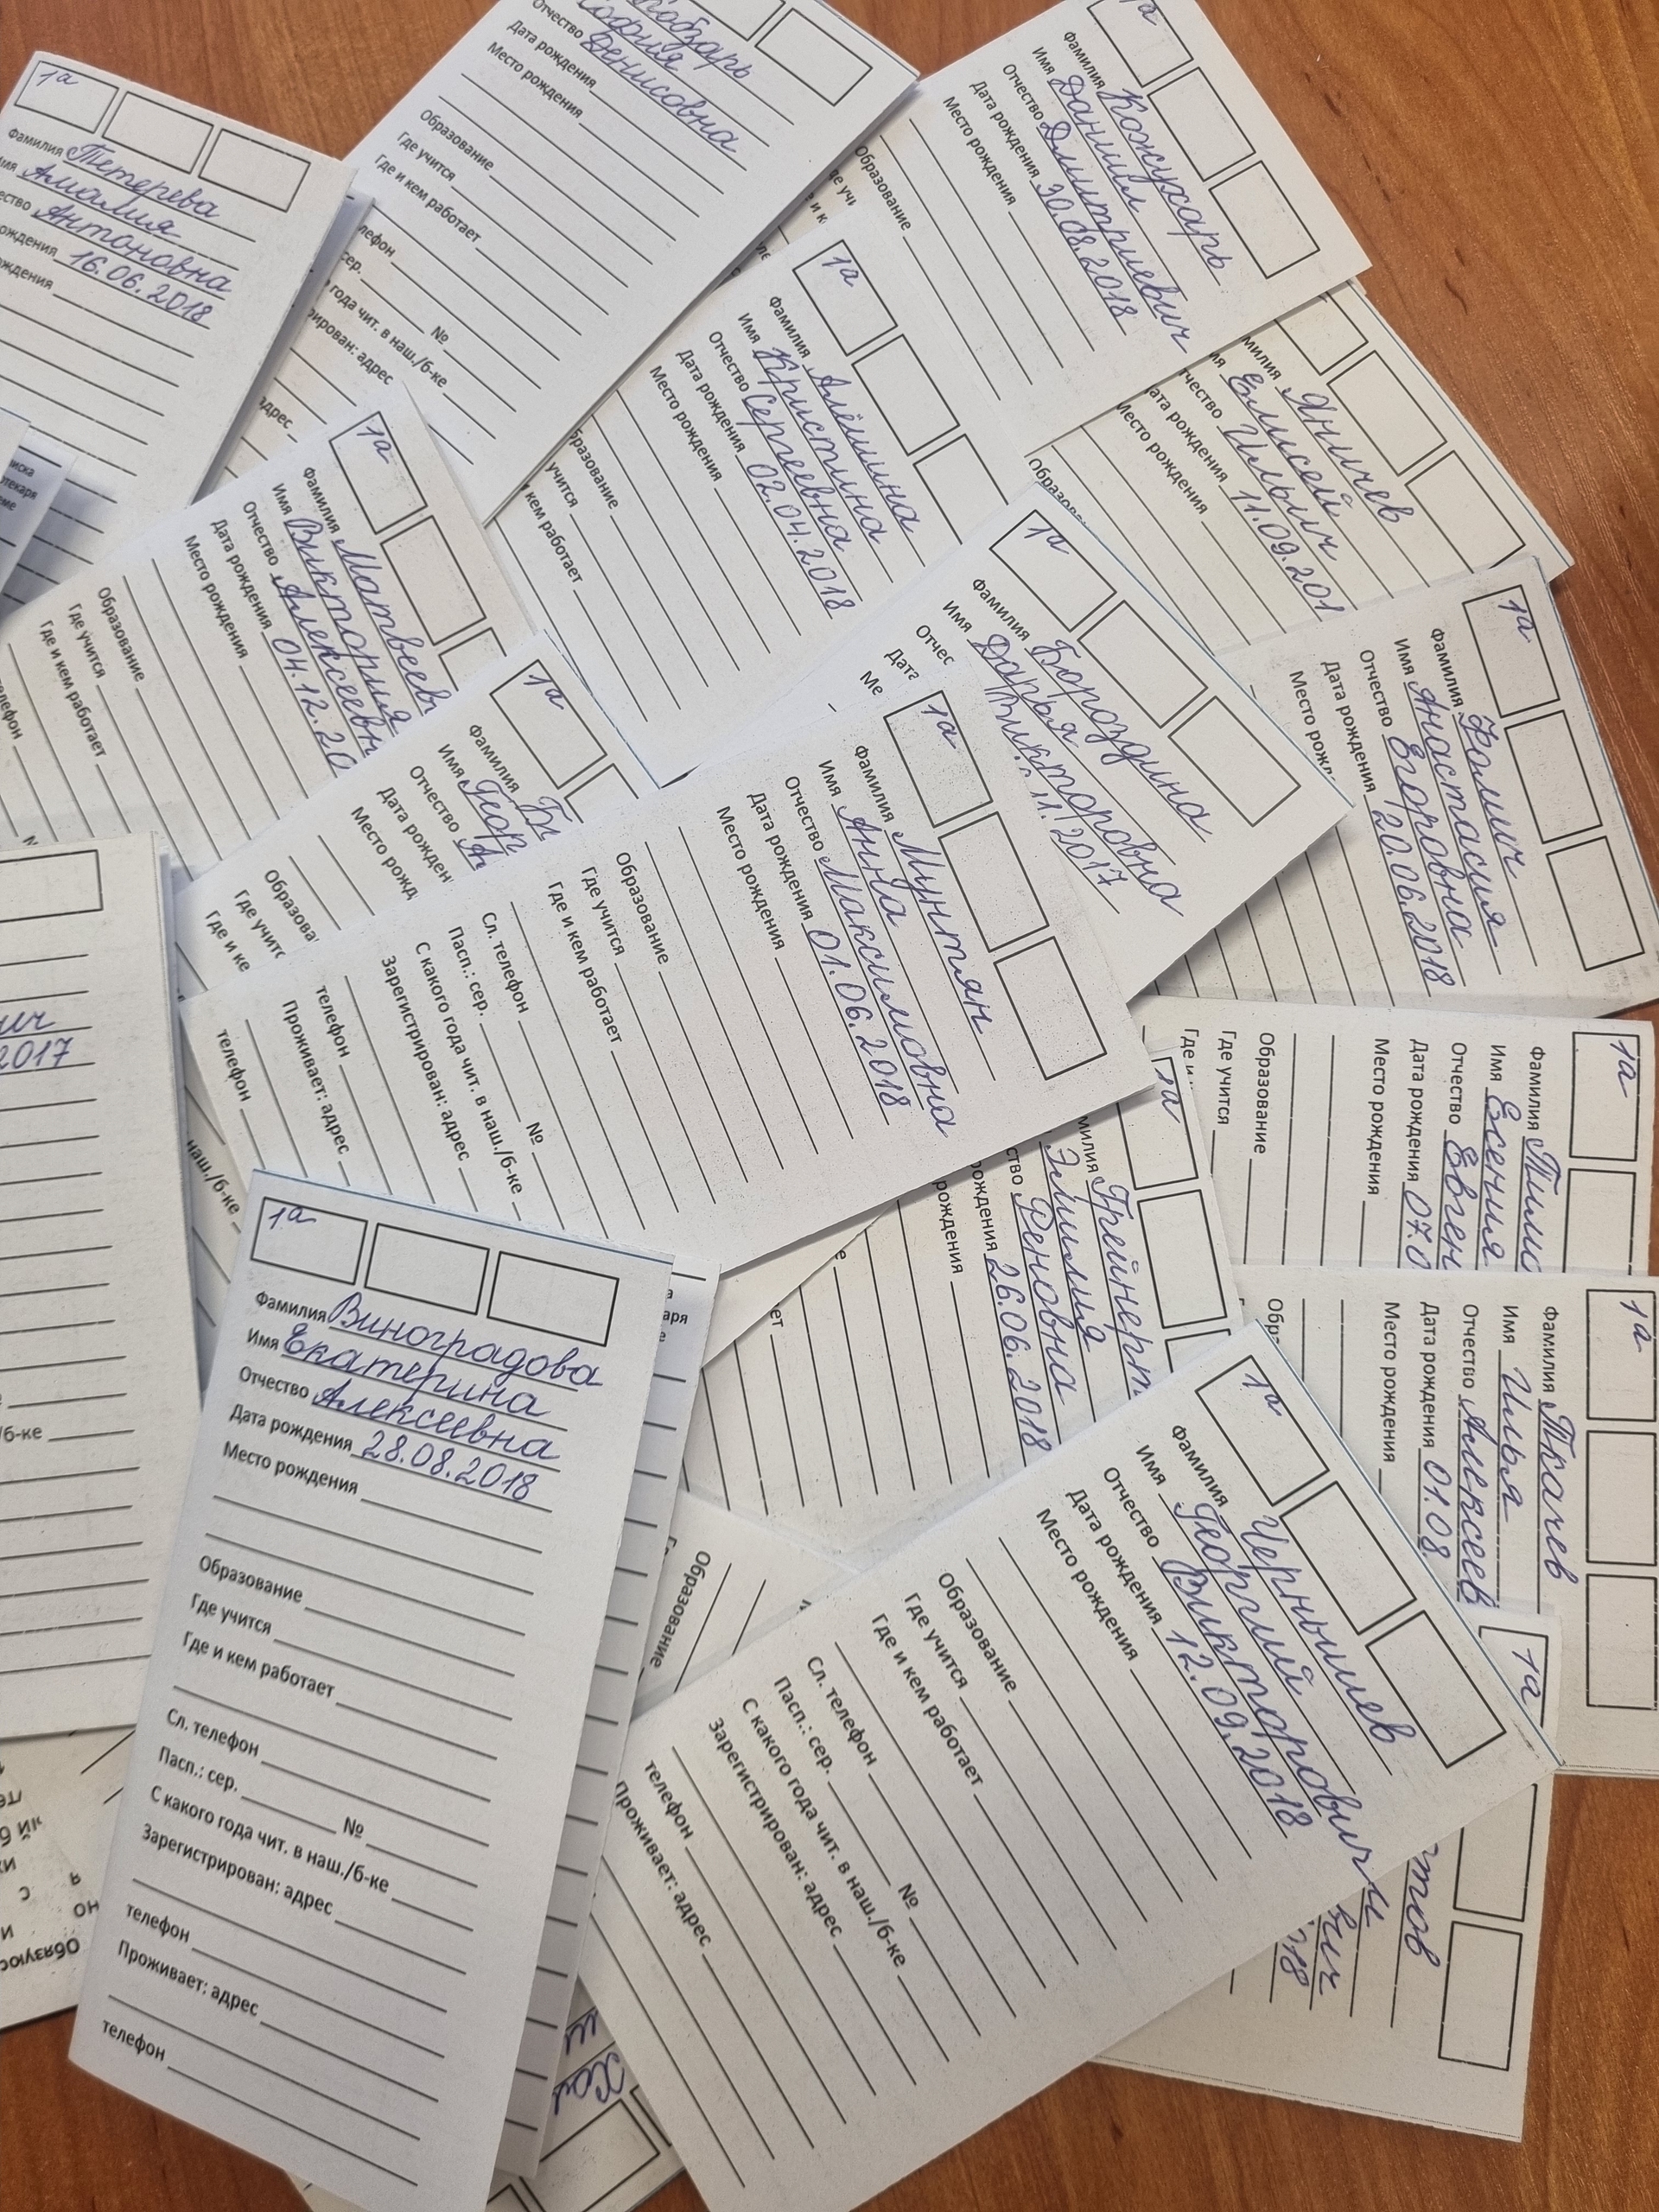 1а
Фамилия Тетерева
Амалия
Антоновна
16.06.2018
Отчество Денисовна
Дата рождения
Место рождения
Образование
Где учится
Где и кем работает
№
года чит. в наш./б-ке
адрес
1а
Фамилия Кожухарь
Имя Даниил
Отчество Дмитриевич
Дата рождения 30.08.2018
Место рождения
Образование
1а
Фамилия Алёшина
Имя Кристина
Отчество Сергеевна
Дата рождения 02.04.2018
Место рождения
учится
кем работает
Яничев
Елисей
Ильич
11.09.201
1а
Фамилия Матвеев
Имя Виктория
Отчество Алексеевн
Дата рождения 04.12.20
Место рождения
Образование
Где учится
Где и кем работает
1а
Фамилия
Имя Геор
Отчество
1а
Фамилия Бороздина
Имя Дарья
Викторовна
11.2017
1а
Фамилия Фолич
Имя Анастасия
Отчество Егоровна
Дата рождения 20.06.2018
1а
Фамилия Мунтян
Имя Анна
Отчество Максимовна
Дата рождения 01.06.2018
Место рождения
Образование
Где учится
Где и кем работает
Сл. телефон
Пасп.: сер. №
С какого года чит. в наш./б-ке
Зарегистрирован: адрес
телефон
Проживает: адрес
телефон
2017
б-ке
наш./б-ке
1а
Грейнерт
Эмилия
Реновна
рождения 26.06.2018
рождения
1а
Фамилия
Имя Есения
Отчество Евген
Дата рождения 07.0
Место рождения
Образование
Где учится
1а
Фамилия Ткачев
Имя Илья
Отчество Алексеев
Дата рождения 01.08.
Место рождения
1а
Фамилия Виноградова
Имя Екатерина
Отчество Алексеевна
Дата рождения 28.08.2018
Место рождения
Образование
Где учится
Где и кем работает
Сл. телефон
Пасп.: сер. №
С какого года чит. в наш./б-ке
Зарегистрирован: адрес
телефон
Проживает: адрес
телефон
Образование
1а
Фамилия Чернышев
Имя Георгий
Отчество Викторович
Дата рождения 12.09.2018
Место рождения
Образование
Где учится
Где и кем работает
Сл. телефон
Пасп.: сер. №
С какого года чит. в наш./б-ке
Зарегистрирован: адрес
телефон
Проживает: адрес
1а